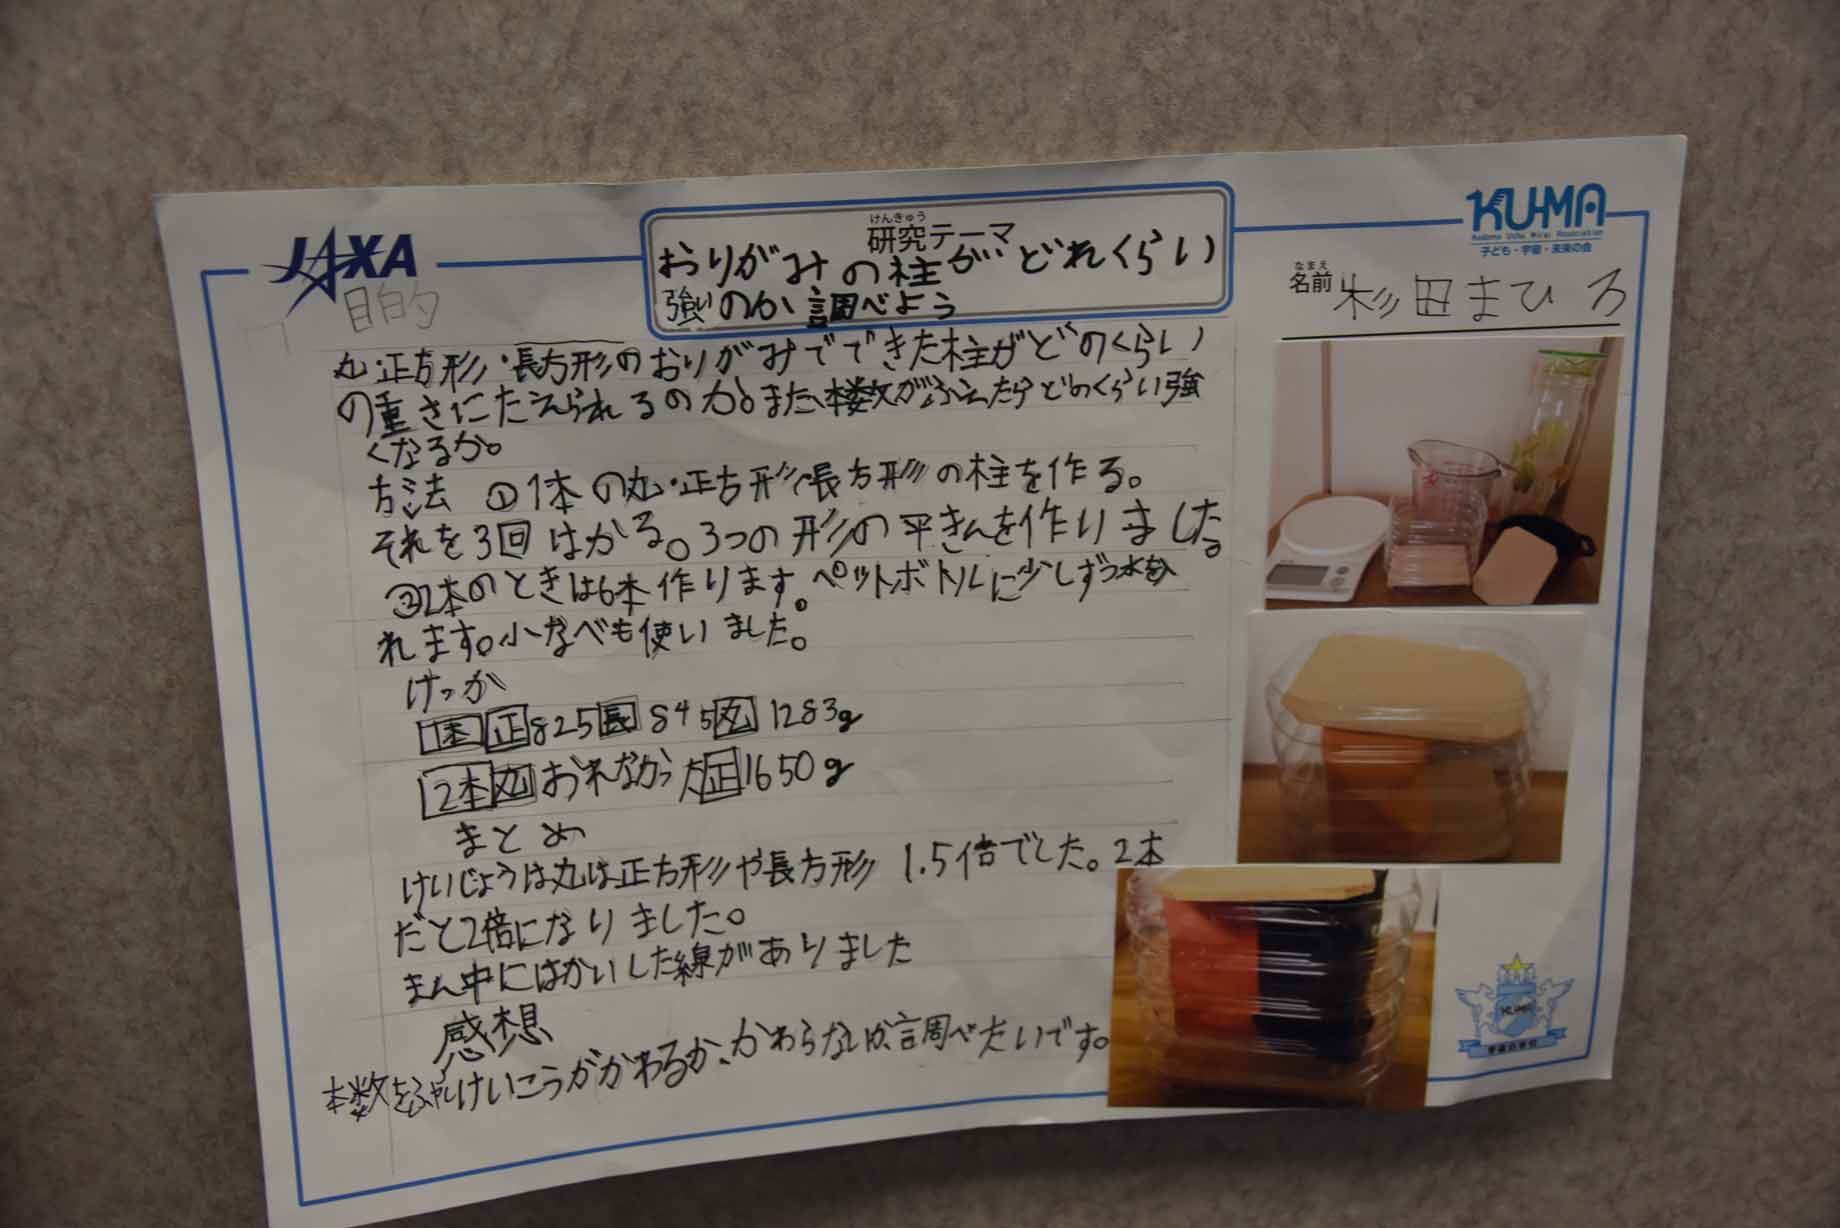 JAXA
けんきゅう
研究テーマ
おりがみの柱がどれくらい
強いのか調べよう
KUMA
子ども・宇宙・未来の会
なまえ
名前 杉田まひろ
目的
丸・正方形・長方形のおりがみでできた柱がどのくらい
の重さにたえられるのか。また、本数がふえたらどのくらい強
くなるか。
方法 ①1本の丸・正方形・長方形の柱を作る。
それを3回はかる。3つの形の平きんを作りました。
②2本のときは6本作ります。ペットボトルに少しずつ水を入
れます。小なべも使いました。
けっか
1本 正 825 長 845 丸 1283g
2本 丸 おれなかった 正 1650g
まとめ
けいじょうは丸は正方形や長方形 1.5倍でした。2本
だと2倍になりました。
まん中にはかいした線がありました
感想
本数をふやしけいこうがかわるか、かわらないか、調べたいです。
KUMA